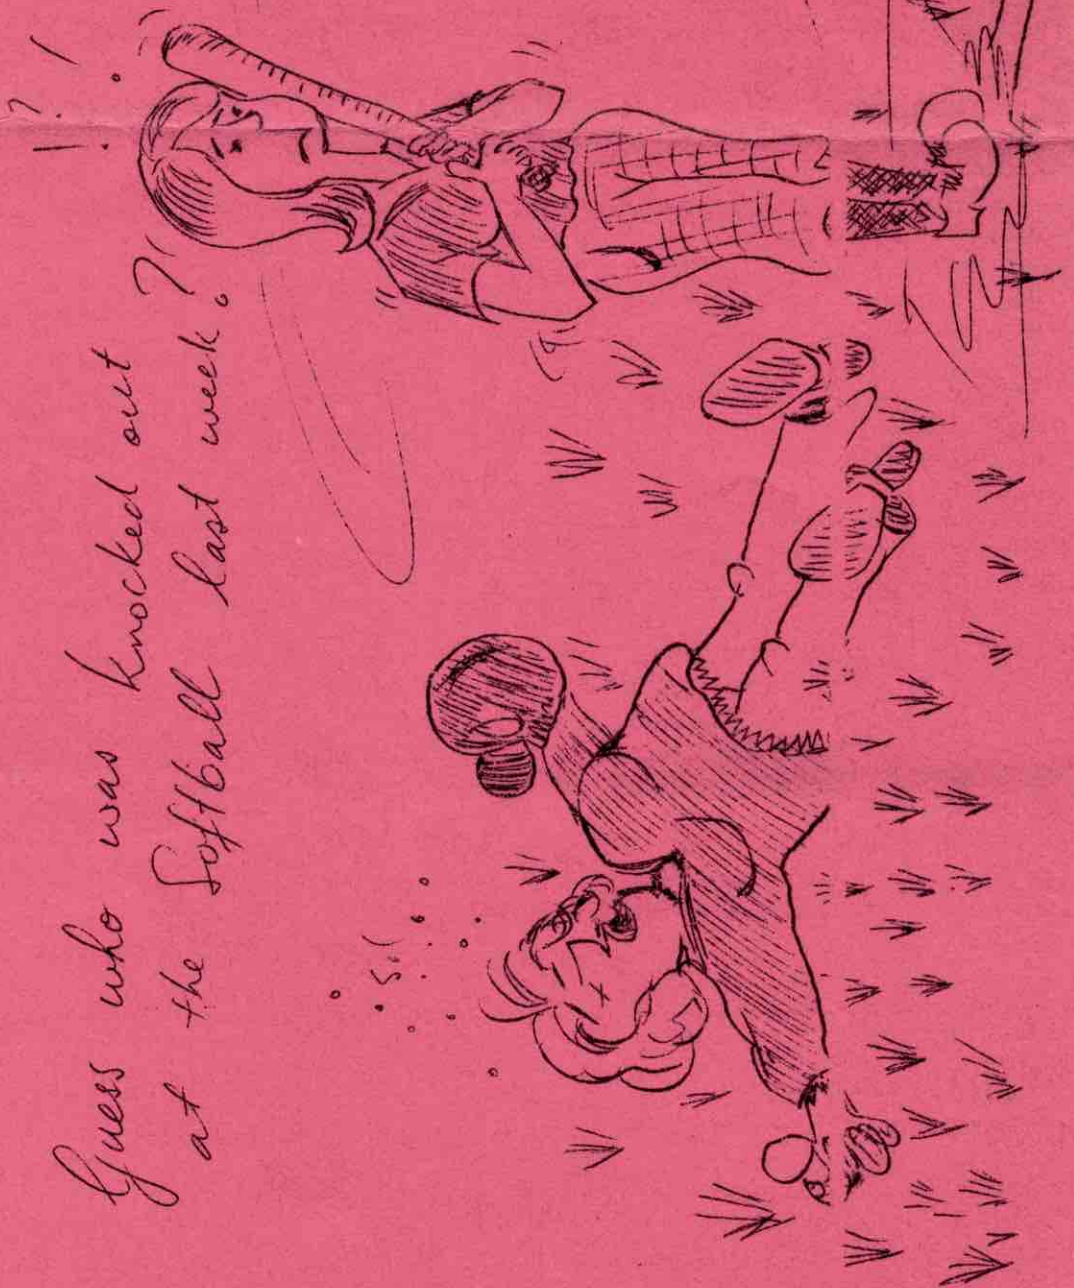 Guess who was knocked out
at the Softball last week?
!? !